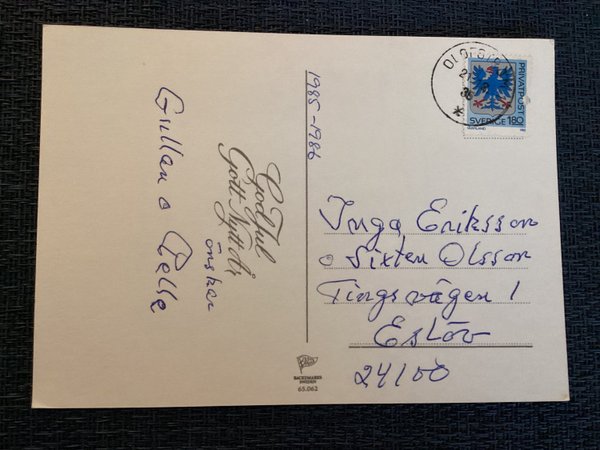 God Jul
Gott Nytt År
önsker
Gullan o Pelle
1985-1986
PRIVATPOST
SVERIGE 180
Inga Eriksson
o Sixten Olsson
Tingsvägen 1
Eslöv
24100
BACKTMANS
SWEDEN
65.062